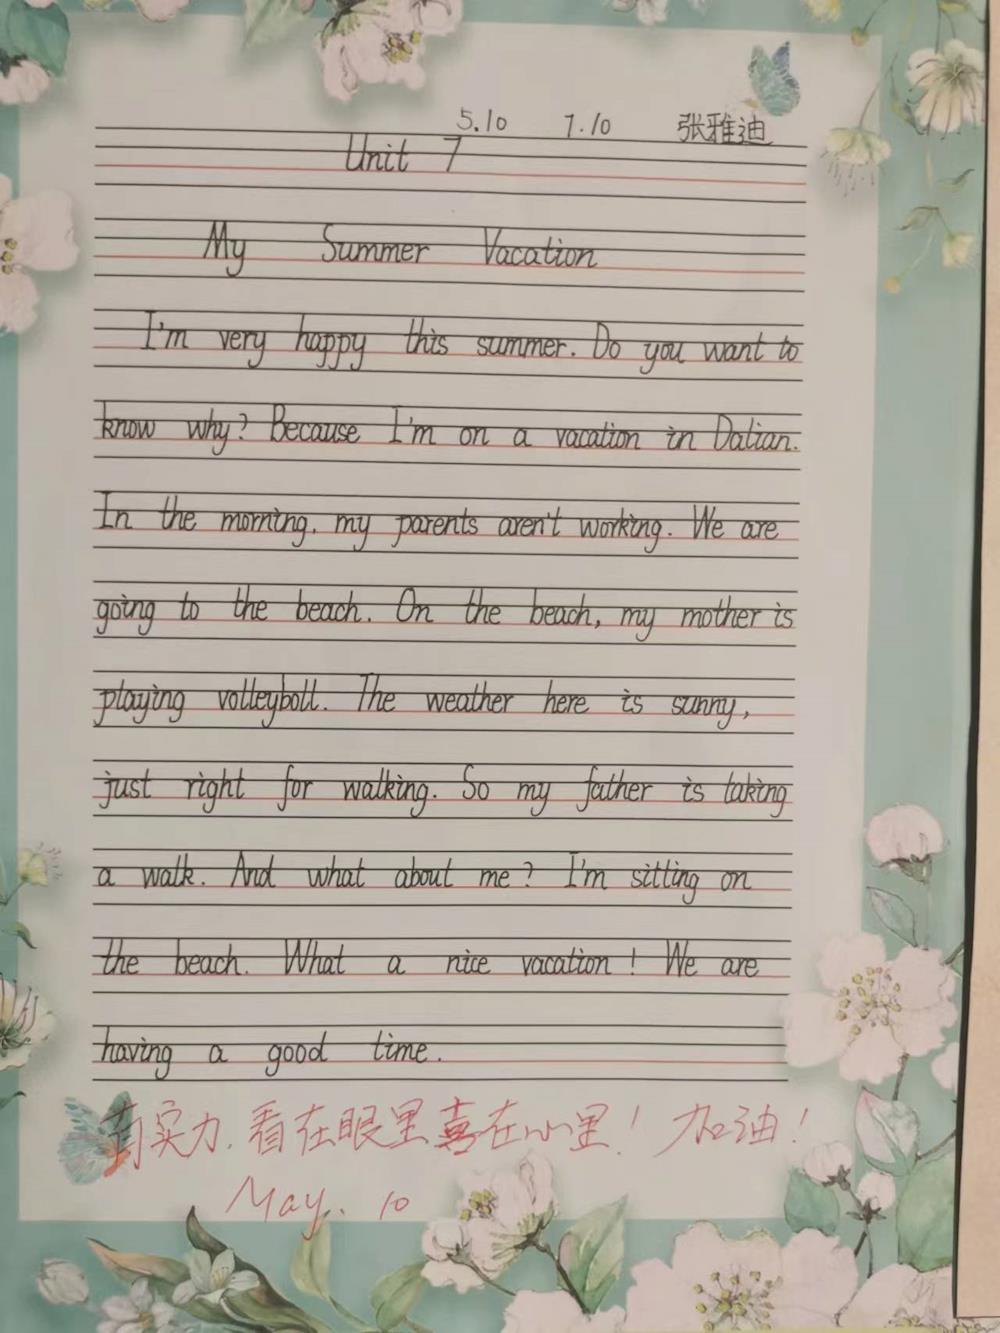 5.10 7.10 张雅迪
Unit 7
My Summer Vacation
I'm very happy this summer. Do you want to
know why? Because I'm on a vacation in Dalian.
In the morning, my parents aren't working. We are
going to the beach. On the beach, my mother is
playing volleyball. The weather here is sunny,
just right for walking. So my father is taking
a walk. And what about me? I'm sitting on
the beach. What a nice vacation! We are
having a good time.
有实力,看在眼里喜在心里!加油!
May. 10